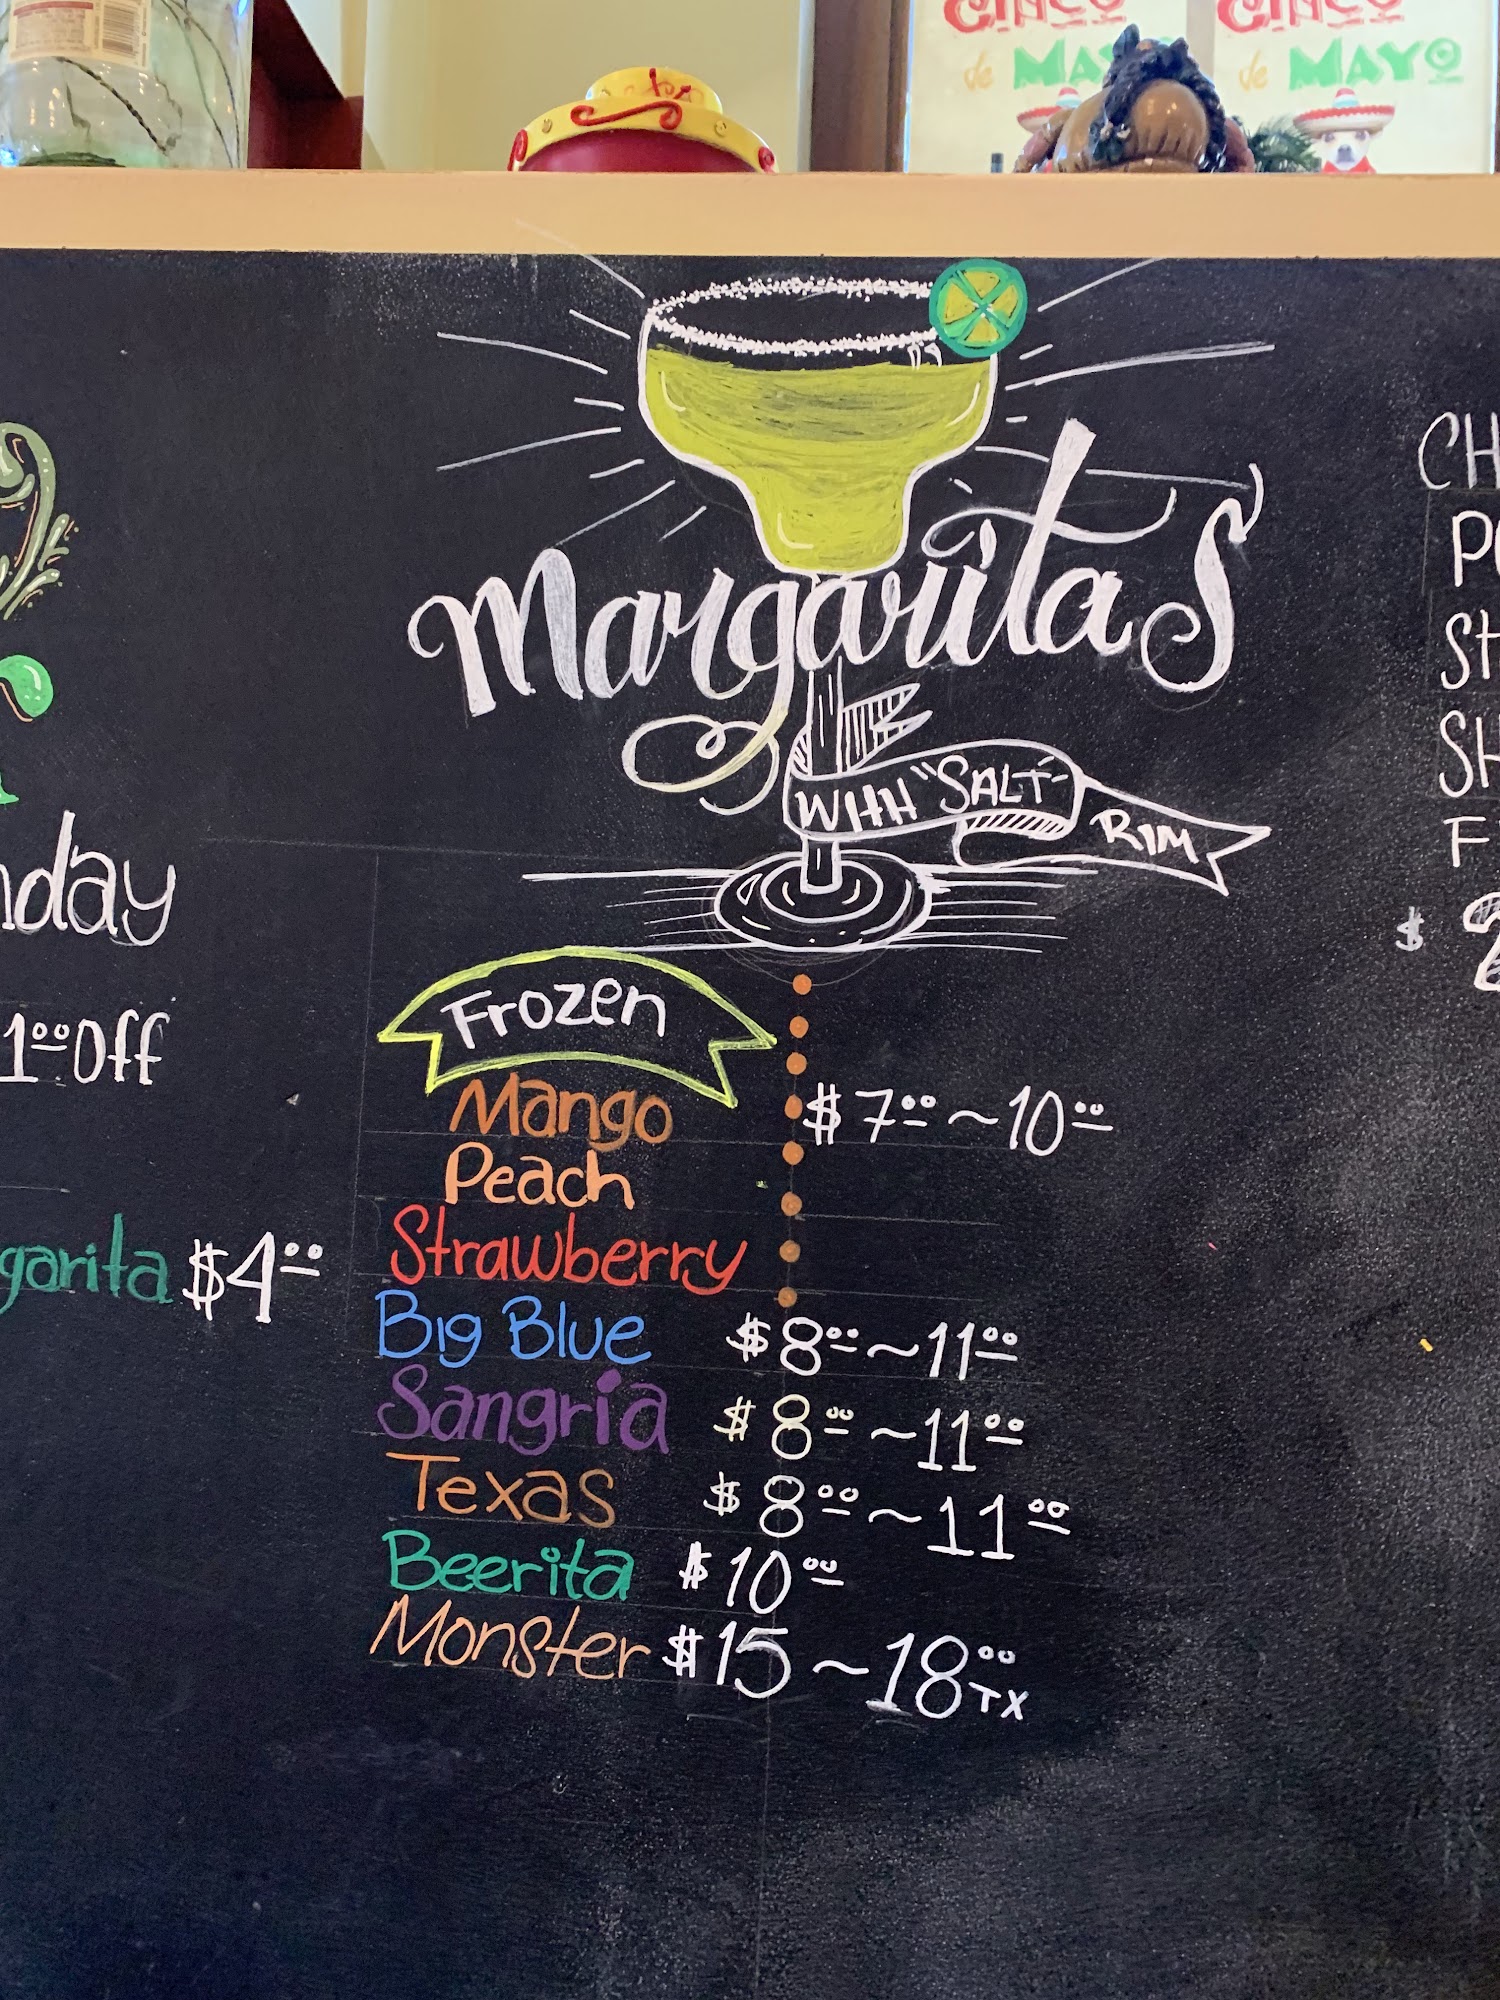 CINCO
de MAYO
CINCO
de MAYO
Margaritas
WITH "SALT" RIM
Frozen
Mango $7.00 ~ 10.00
Peach
Strawberry
Big Blue $8.00 ~ 11.00
Sangria $8.00 ~ 11.00
Texas $8.00 ~ 11.00
Beerita $10.00
Monster $15 ~ 18.00 TX
nday
1.00 Off
garita $4.00
CH
ST
SH
F
$ 2